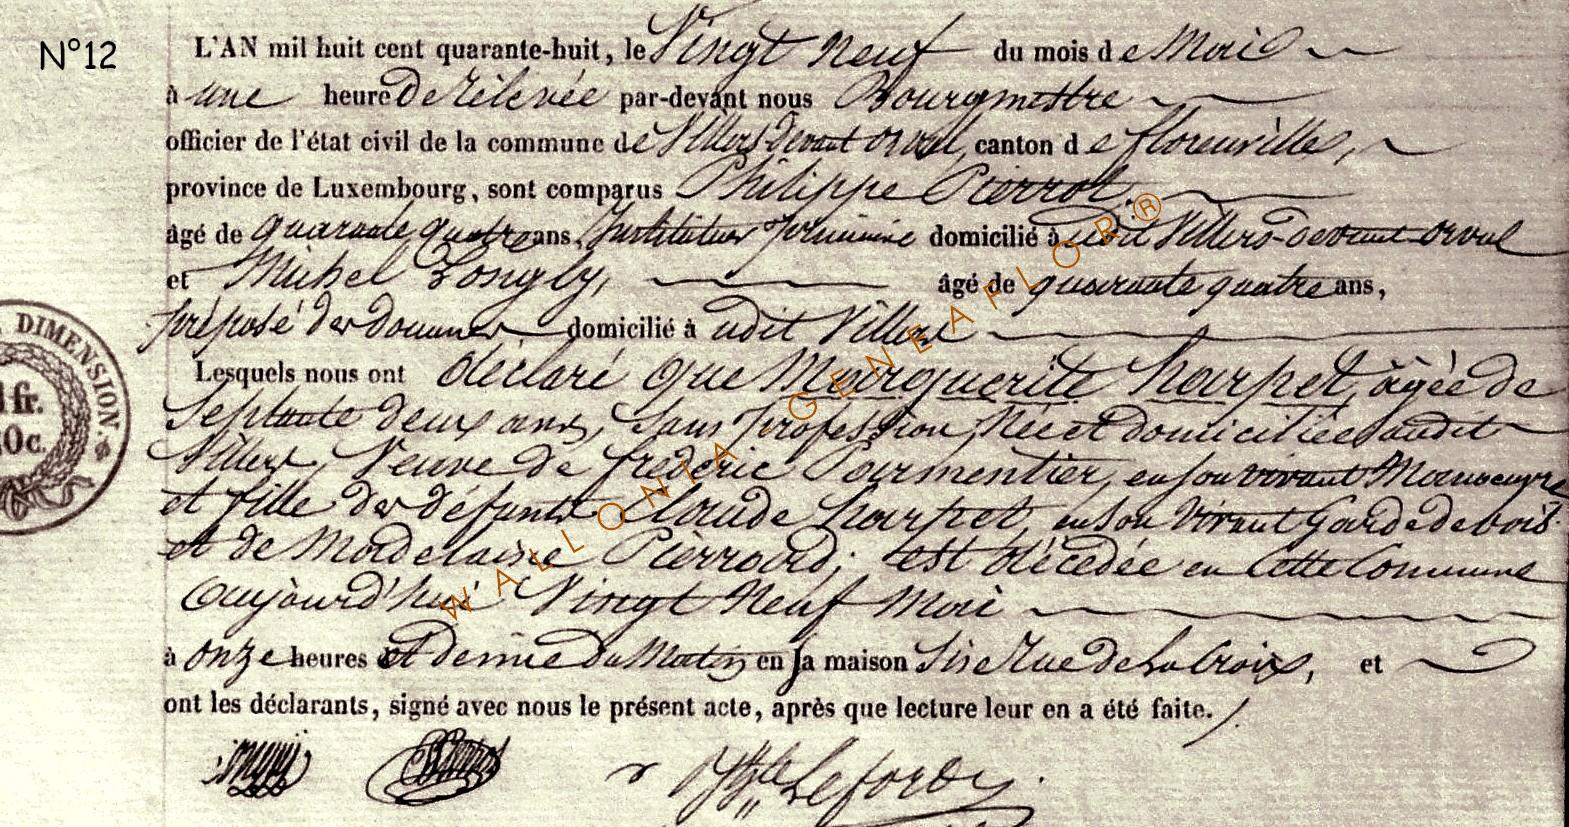 N°12
L'AN mil huit cent quarante-huit, le Vingt Neuf du mois de Mai
à une heure de rélevée par-devant nous Bourgmestre
officier de l'état civil de la commune de Villers-devant-orval, canton de florenville,
province de Luxembourg, sont comparus Philippe Pierrot,
âgé de quarante quatre ans, Instituteur primaire domicilié à udit Villers-devant-orval
et Michel Longly, âgé de quarante quatre ans,
préposé des douanes domicilié à udit Villers
Lesquels nous ont déclaré que Marguerite harpet, âgée de
Septante deux ans, Sans profession, Née et domiciliée audit
Villers, Veuve de frédéric Parmentier, en son vivant Manoeuvre
et fille des défunts Claude harpet, en son vivant Garde de bois
et de Madelaine Pierrard; est décédée en Cette Commune
aujourd'hui Vingt Neuf Mai
à onze heures et demie du Matin en sa maison Sise Rue de La Croix, et
ont les déclarants, signé avec nous le présent acte, après que lecture leur en a été faite.
DIMENSION
fr.
0c.
WALLONIA GENEAFLOR®